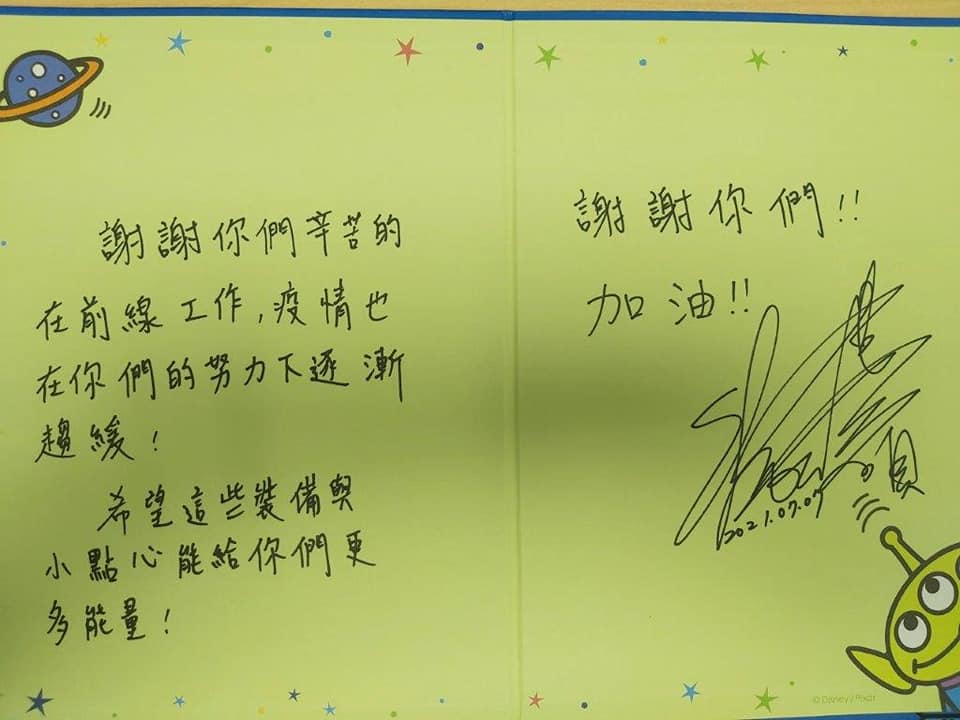 謝謝你們辛苦的
在前線工作,疫情也
在你們的努力下逐漸
趨緩!
希望這些裝備與
小點心能給你們更
多能量!
謝謝你們!!
加油!!
2021.07.07
© Disney/Pixar